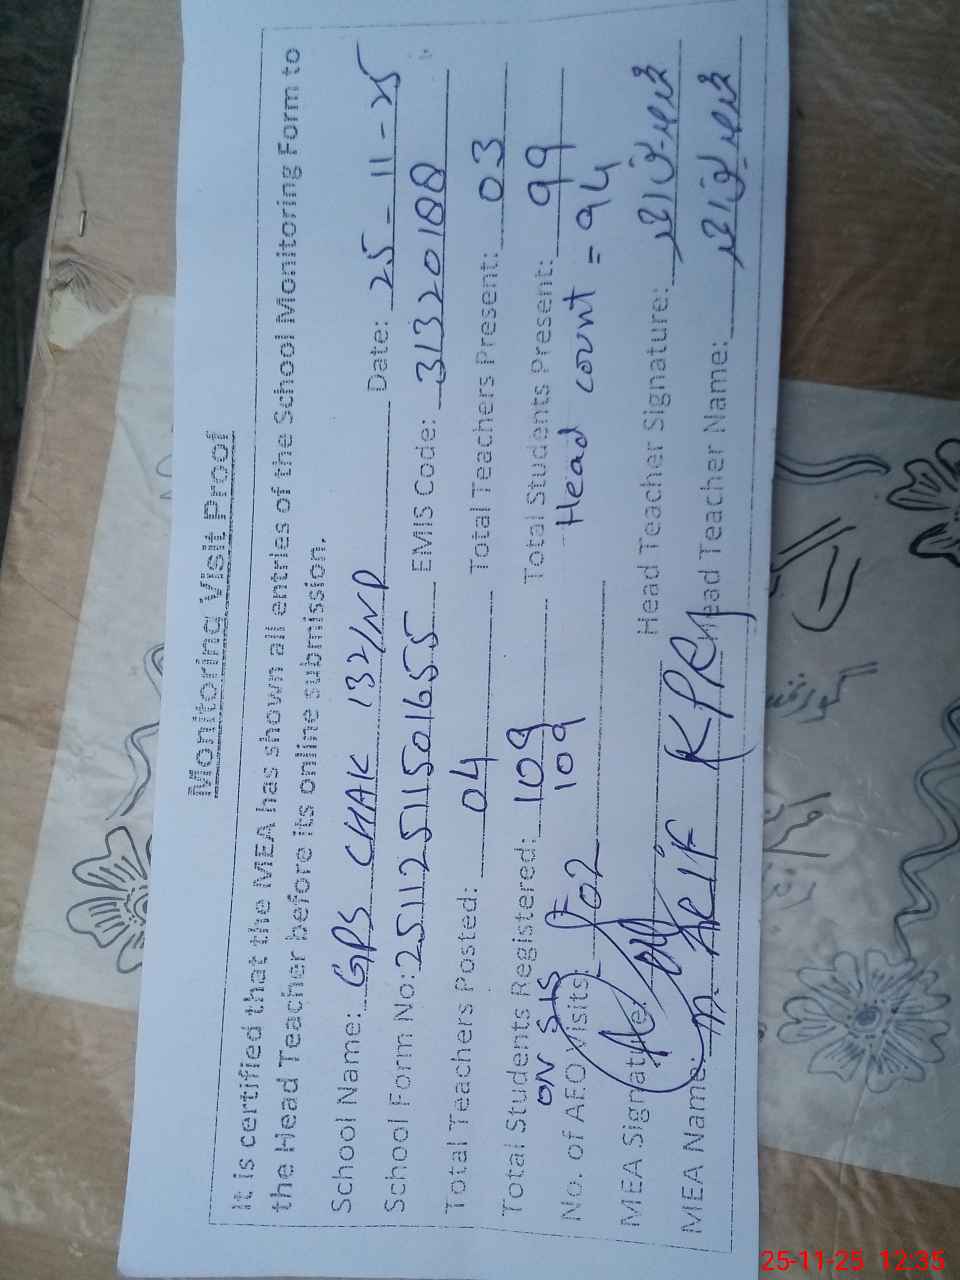 Monitoring Visit Proof
It is certified that the MEA has shown all entries of the School Monitoring Form to
the Head Teacher before its online submission.
School Name: GPS CHAK 132/NP Date: 25-11-25
School Form No: 25112511501655 EMIS Code: 31320188
Total Teachers Posted: 04 Total Teachers Present: 03
Total Students Registered: 109 Total Students Present: 99
ON SIS 109 Head count = 94
No. of AEO Visits: 02
MEA Signature: Head Teacher Signature:
MEA Name: M. ARIF KPR Head Teacher Name:
25-11-25 12:35